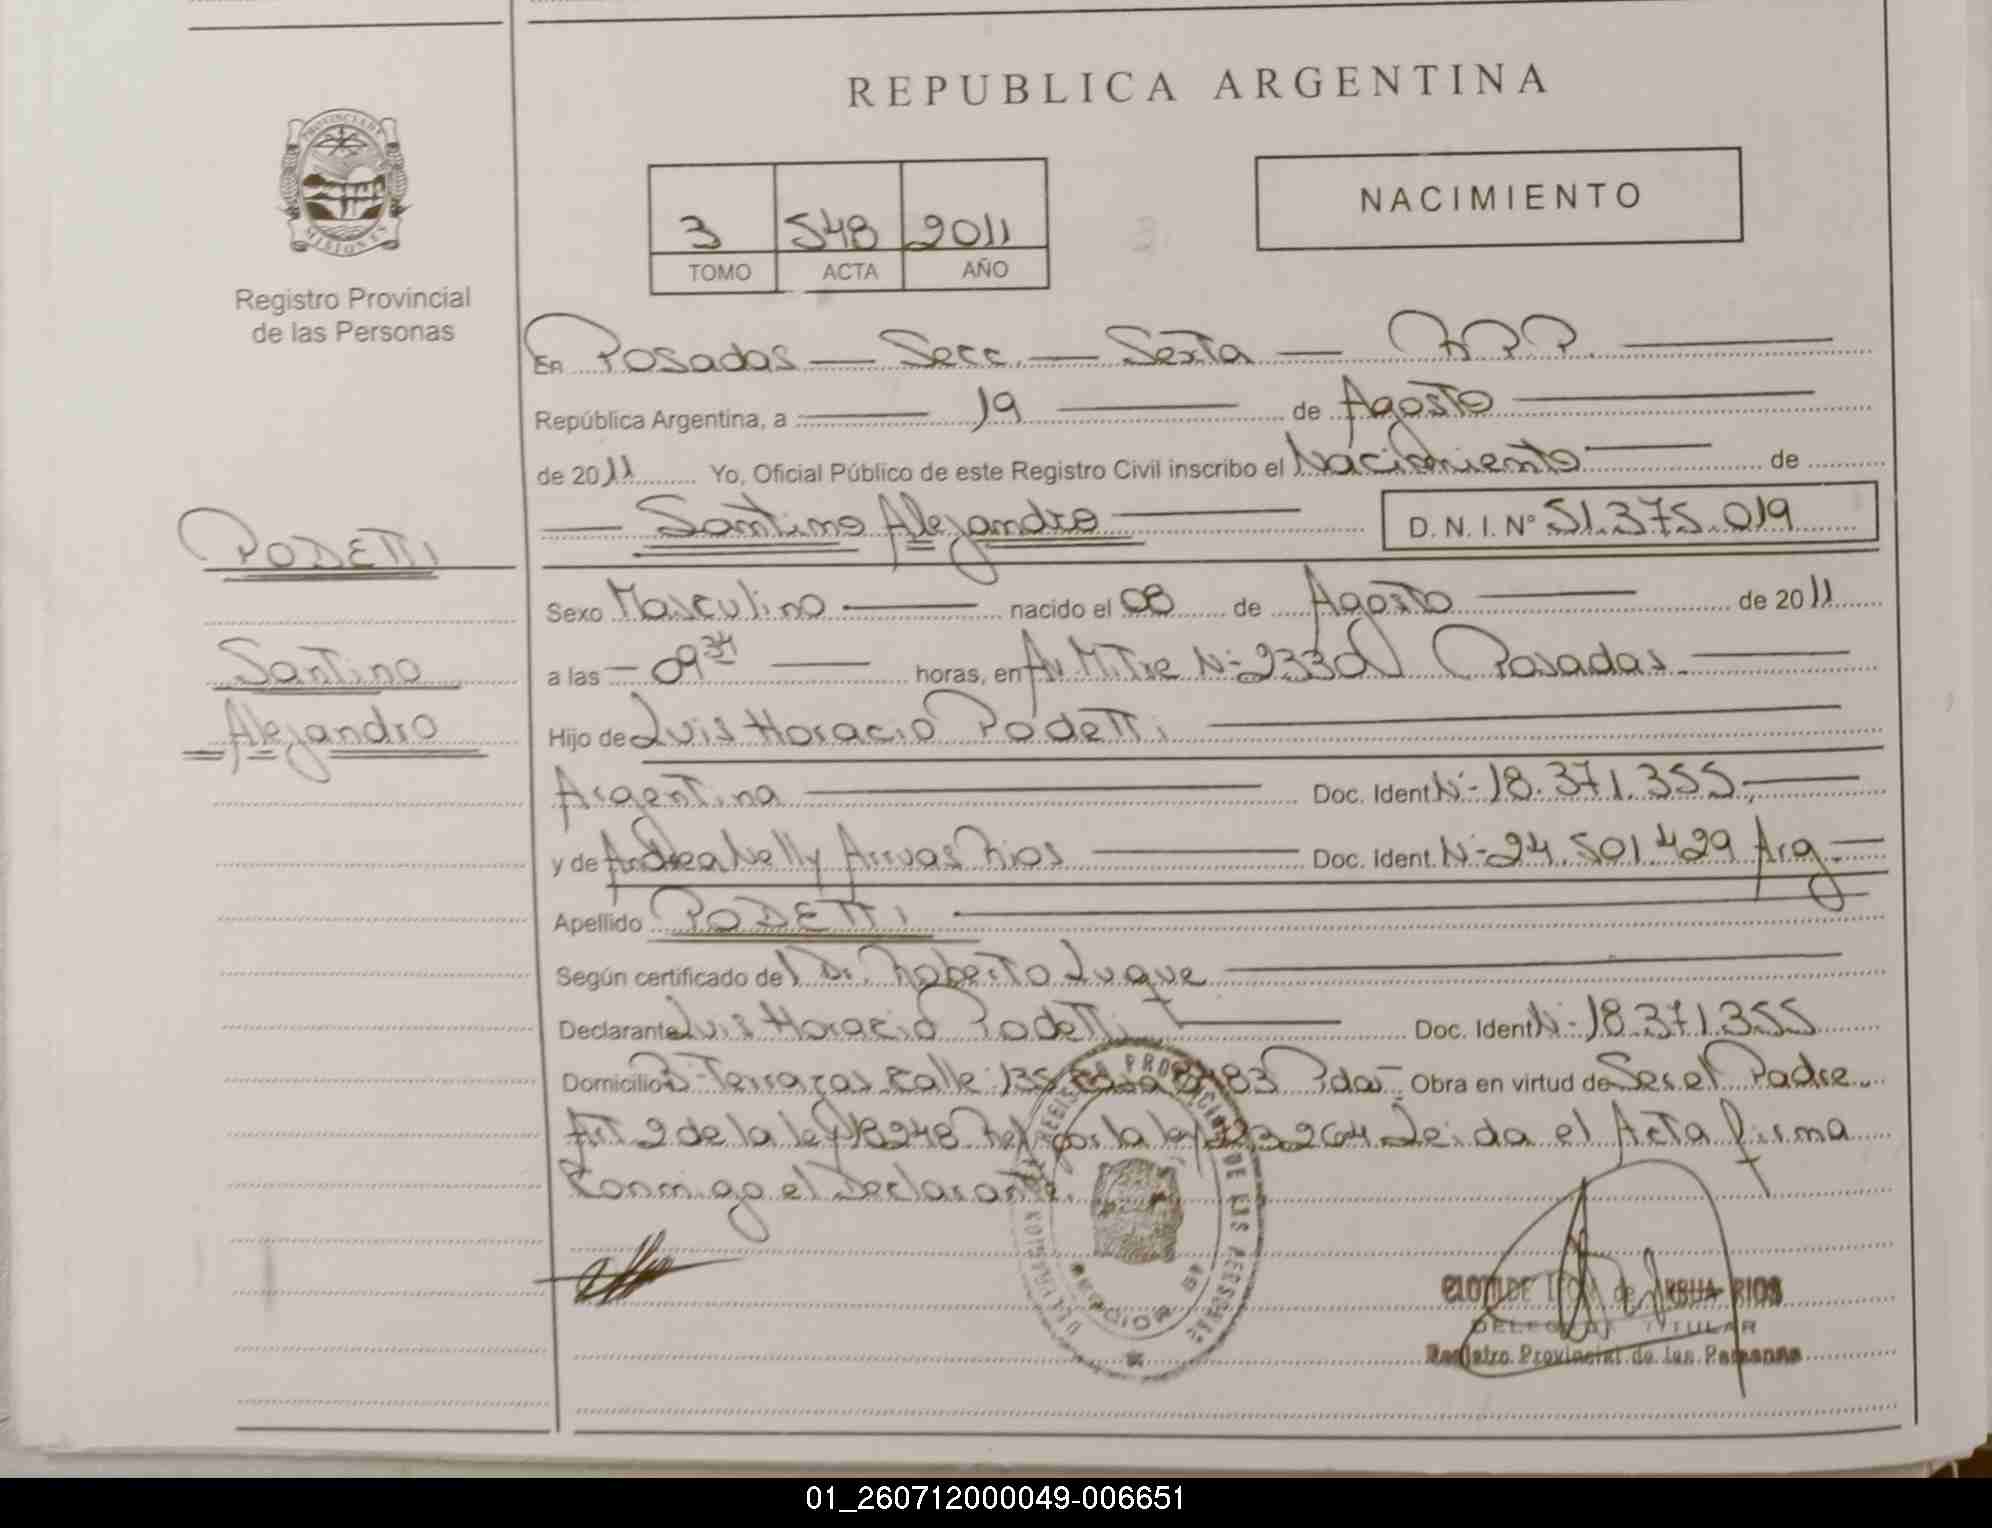 REPUBLICA ARGENTINA
PROVINCIA DE
MISIONES
Registro Provincial
de las Personas
3 548 2011
TOMO ACTA AÑO
NACIMIENTO
En Posadas — Secc. — Sexta — RPP.
República Argentina, a 19 de Agosto
de 2011 Yo, Oficial Público de este Registro Civil inscribo el Nacimiento de
Santino Alejandro D. N. I. Nº 51.375.019
PODETTI
Santino
Alejandro
Sexo Masculino nacido el 08 de Agosto de 2011
a las 09 34 horas, en Av Mitre Nº 2330 Posadas
Hijo de Luis Horacio Podetti
Argentina Doc. Ident Nº 18.371.355
y de Andrea Nelly Arruas Rios Doc. Ident. Nº 24.501.429 Arg.
Apellido PODETTI
Según certificado del Dr. Roberto Luque
Declarante Luis Horacio Podetti Doc. Ident Nº 18.371.355
Domicilio Terrazas Calle 135 Casa 83 Pdas Obra en virtud de Ser el Padre
Art 2 de la ley 18248 Ref por la ley 23264 Leida el Acta firma
Conmigo el Declarante.
DELEGADA TITULAR
Registro Provincial de las Personas
01_260712000049-006651